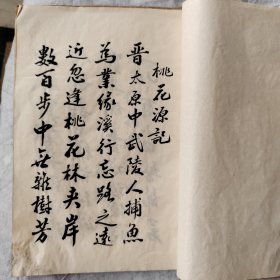 桃花源記
晋太原中武陵人捕魚
為業缘溪行忘路之遠
近忽逢桃花林夹岸
數百步中無雜樹芳